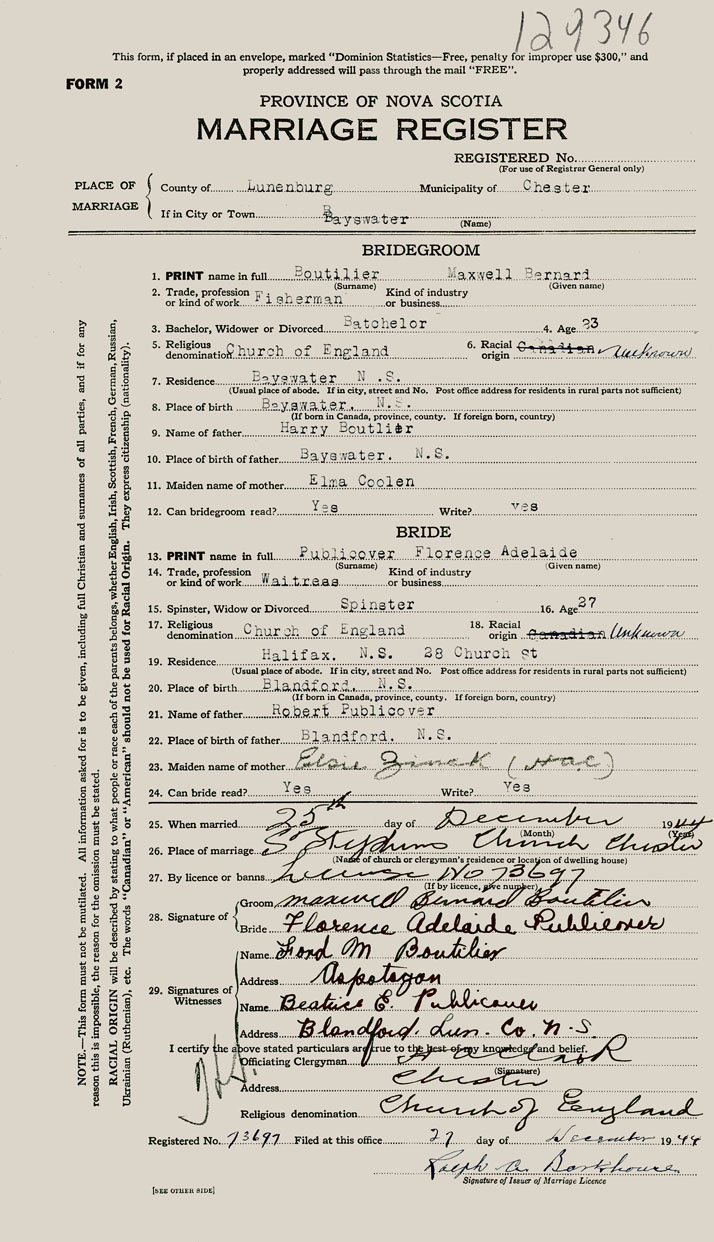 129346
This form, if placed in an envelope, marked "Dominion Statistics—Free, penalty for improper use $300," and
properly addressed will pass through the mail "FREE".
FORM 2
PROVINCE OF NOVA SCOTIA
MARRIAGE REGISTER
REGISTERED No.
(For use of Registrar General only)
PLACE OF MARRIAGE
County of Lunenburg Municipality of Chester
If in City or Town Bayswater
(Name)
BRIDEGROOM
1. PRINT name in full Boutilier Maxwell Bernard
(Surname) (Given name)
2. Trade, profession or kind of work Fisherman Kind of industry or business
3. Bachelor, Widower or Divorced Batchelor 4. Age 23
5. Religious denomination Church of England 6. Racial origin Canadian Unknown
7. Residence Bayswater N .S.
(Usual place of abode. If in city, street and No. Post office address for residents in rural parts not sufficient)
8. Place of birth Bayswater. N.S.
(If born in Canada, province, county. If foreign born, country)
9. Name of father Harry Boutlier
10. Place of birth of father Bayswater. N.S.
11. Maiden name of mother Elma Coolen
12. Can bridegroom read? Yes Write? yes
BRIDE
13. PRINT name in full Publicover Florence Adelaide
(Surname) (Given name)
14. Trade, profession or kind of work Waitreas Kind of industry or business
15. Spinster, Widow or Divorced Spinster 16. Age 27
17. Religious denomination Church of England 18. Racial origin Canadian Unknown
19. Residence Halifax. N.S. 28 Church St
(Usual place of abode. If in city, street and No. Post office address for residents in rural parts not sufficient)
20. Place of birth Blandford. N.S.
(If born in Canada, province, county. If foreign born, country)
21. Name of father Robert Publicover
22. Place of birth of father Blandford. N.S.
23. Maiden name of mother Elsie Zinck (HaC)
24. Can bride read? Yes Write? Yes
25. When married 25th day of December 1944
(Month) (Year)
26. Place of marriage St Stephens Church Chester
(Name of church or clergyman's residence or location of dwelling house)
27. By licence or banns License No 73697
(If by licence, give number)
28. Signature of Groom Maxwell Bernard Boutilier
Bride Florence Adelaide Publicover
29. Signatures of Witnesses
Name Ford M Boutilier
Address Aspotogan
Name Beatrice E. Publicover
Address Blandford. Lun. Co. N.S.
I certify the above stated particulars are true to the best of my knowledge and belief.
Officiating Clergyman
(Signature)
Address Chester
Religious denomination Church of England
Registered No. 73697 Filed at this office 27 day of December 1944
Ralph A. Barkhouse
Signature of Issuer of Marriage Licence
[SEE OTHER SIDE]
NOTE.—This form must not be mutilated. All information asked for is to be given, including full Christian and surnames of all parties, and if for any
reason this is impossible, the reason for the omission must be stated.
RACIAL ORIGIN will be described by stating to what people or race each of the parents belongs, whether English, Irish, Scottish, French, German, Russian,
Ukrainian (Ruthenian), etc. The words "Canadian" or "American" should not be used for Racial Origin. They express citizenship (nationality).